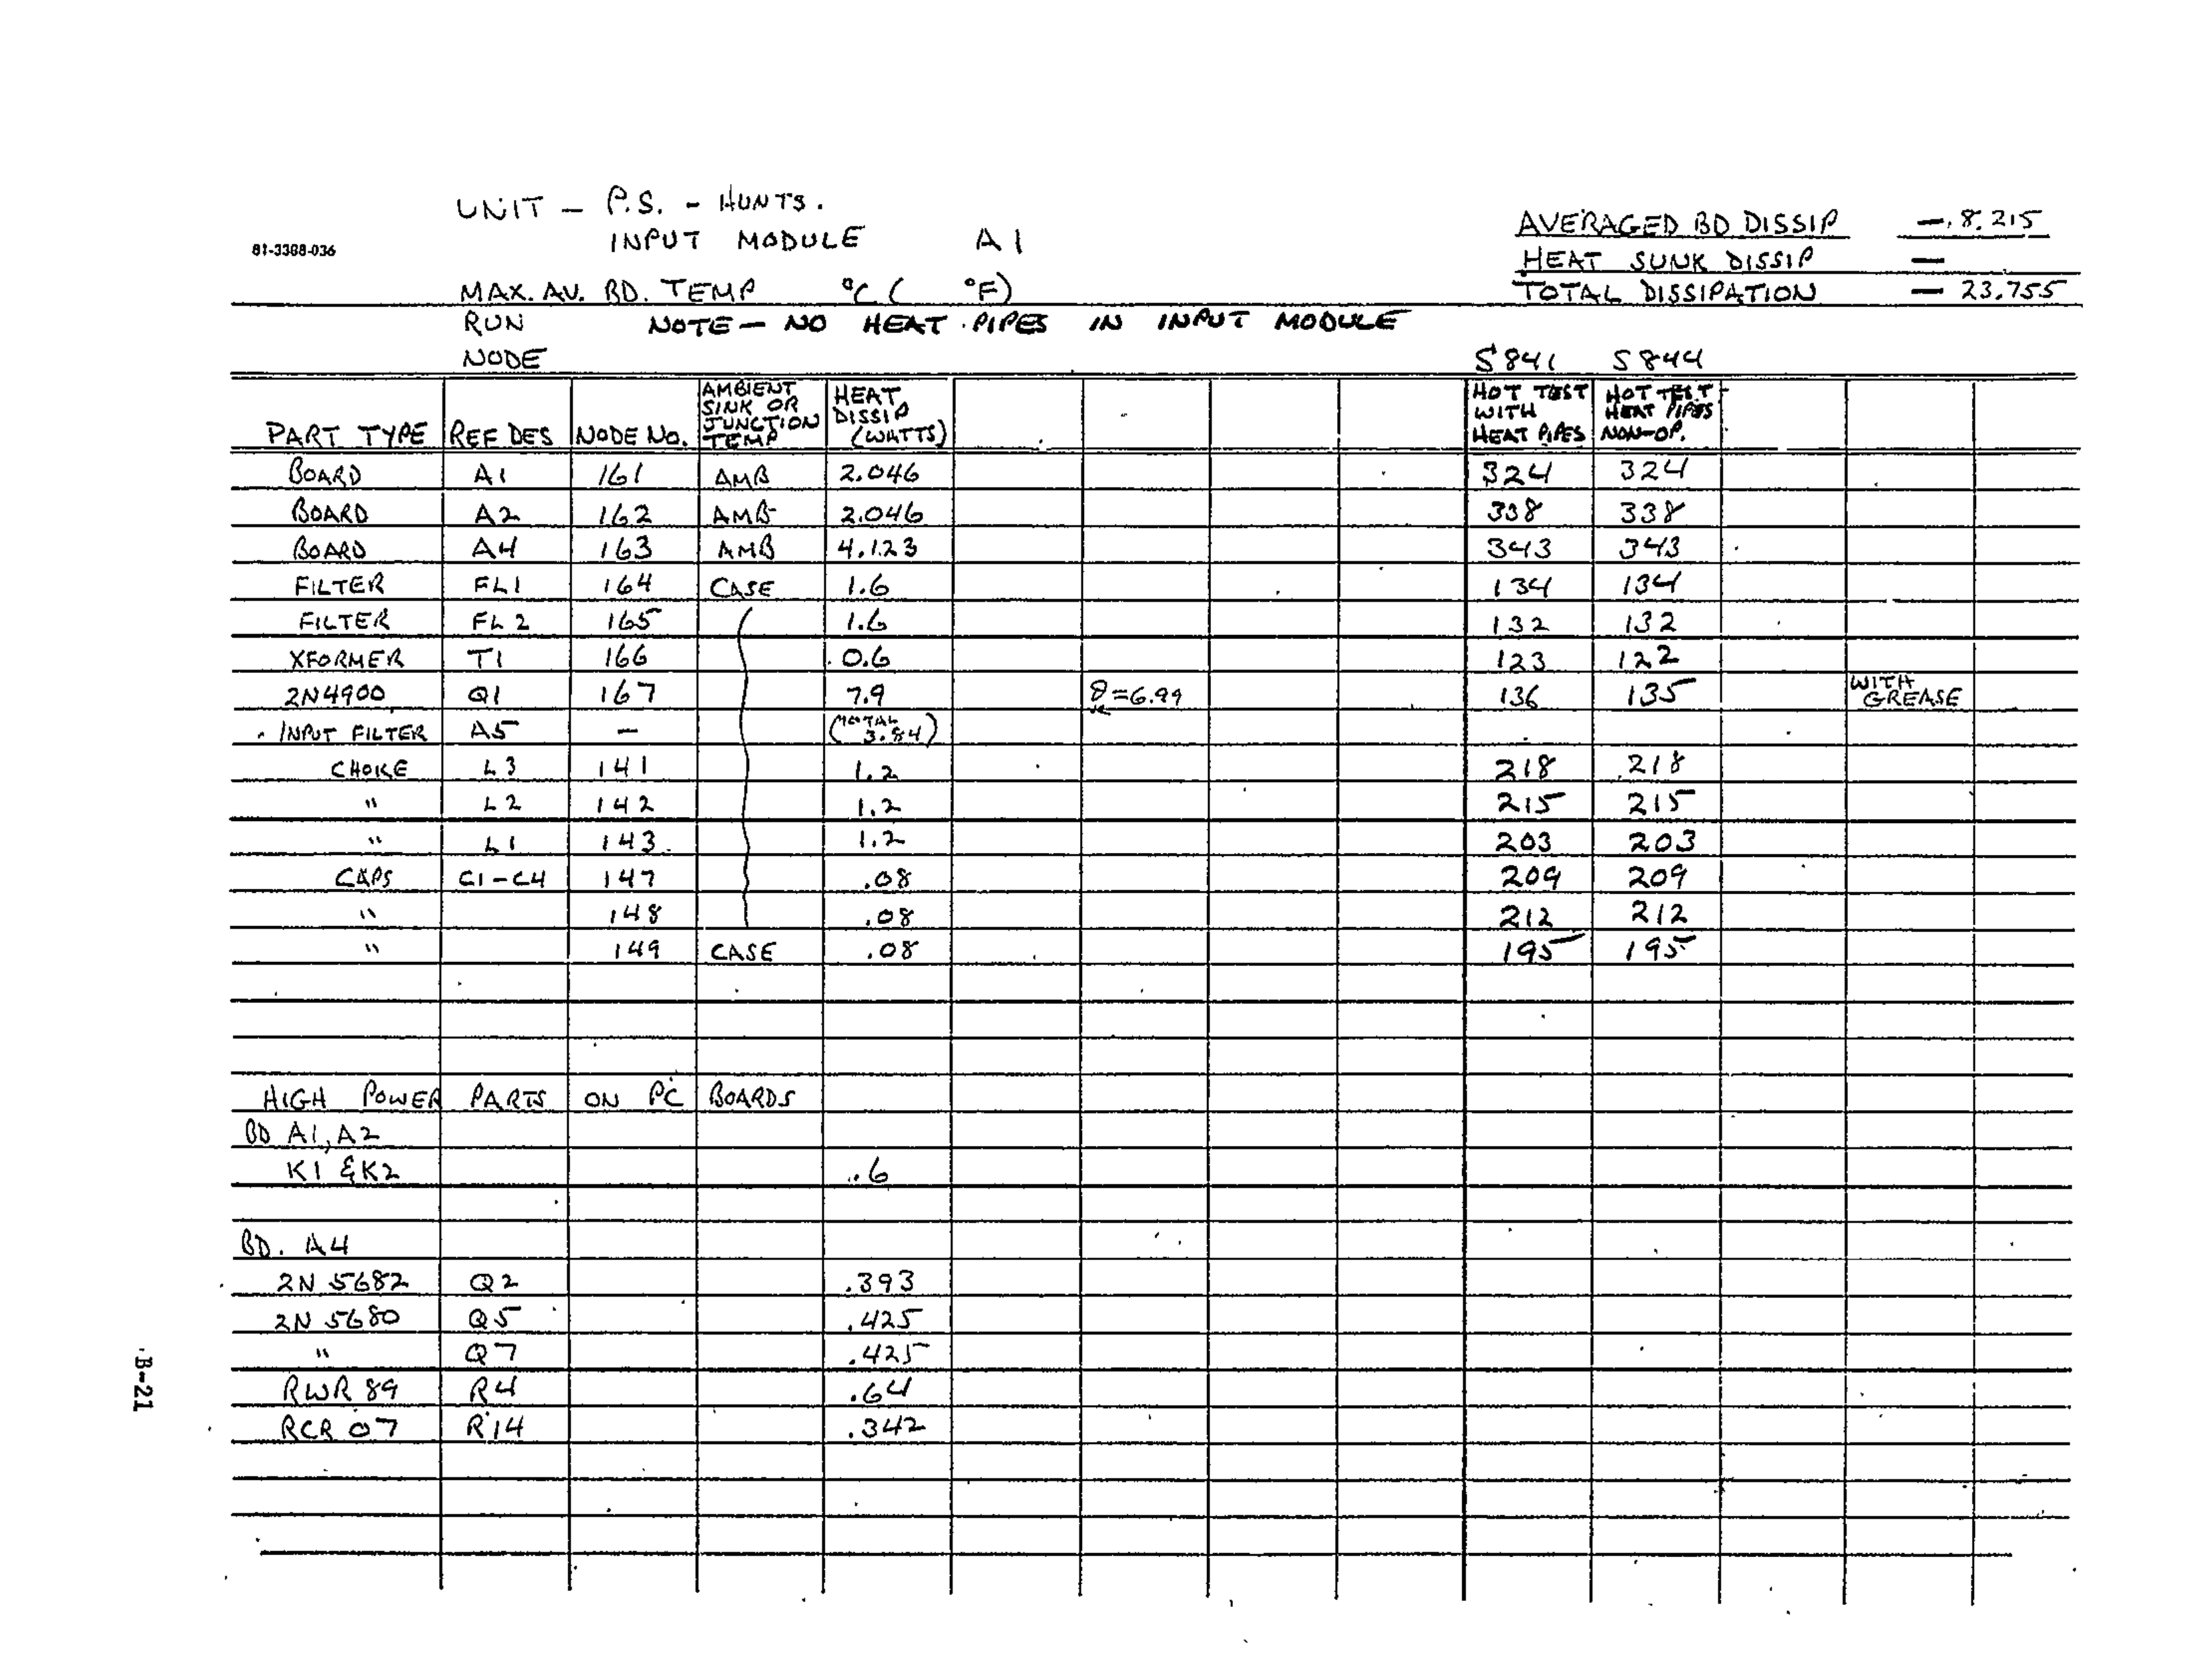 UNIT – P.S. - HUNTS.
INPUT MODULE A1
81-3388-036
AVERAGED BD DISSIP — 8.215
HEAT SUNK DISSIP —
MAX. AV. BD. TEMP °C ( °F)
TOTAL DISSIPATION — 23.755
RUN NOTE — NO HEAT PIPES IN INPUT MODULE
NODE S841 S844
PART TYPE REF DES NODE NO. AMBIENT SINK OR JUNCTION TEMP HEAT DISSIP (WATTS) HOT TEST WITH HEAT PIPES HOT TEST HEAT PIPES NON-OP.
BOARD A1 161 AMB 2.046 324 324
BOARD A2 162 AMB 2.046 338 338
BOARD A4 163 AMB 4.123 343 343
FILTER FL1 164 CASE 1.6 134 134
FILTER FL2 165 1.6 132 132
XFORMER T1 166 0.6 123 122
2N4900 Q1 167 7.9 =6.99 136 135 WITH GREASE
INPUT FILTER A5 — (TOTAL 3.84)
CHOKE L3 141 1.2 218 218
" L2 142 1.2 215 215
" L1 143 1.2 203 203
CAPS C1-C4 147 .08 209 209
" 148 .08 212 212
" 149 CASE .08 195 195
HIGH POWER PARTS ON PC BOARDS
BD A1, A2
K1 & K2 .6
BD. A4
2N 5682 Q2 .393
2N 5680 Q5 .425
" Q7 .425
RWR 89 R4 .64
RCR 07 R14 .342
B-21